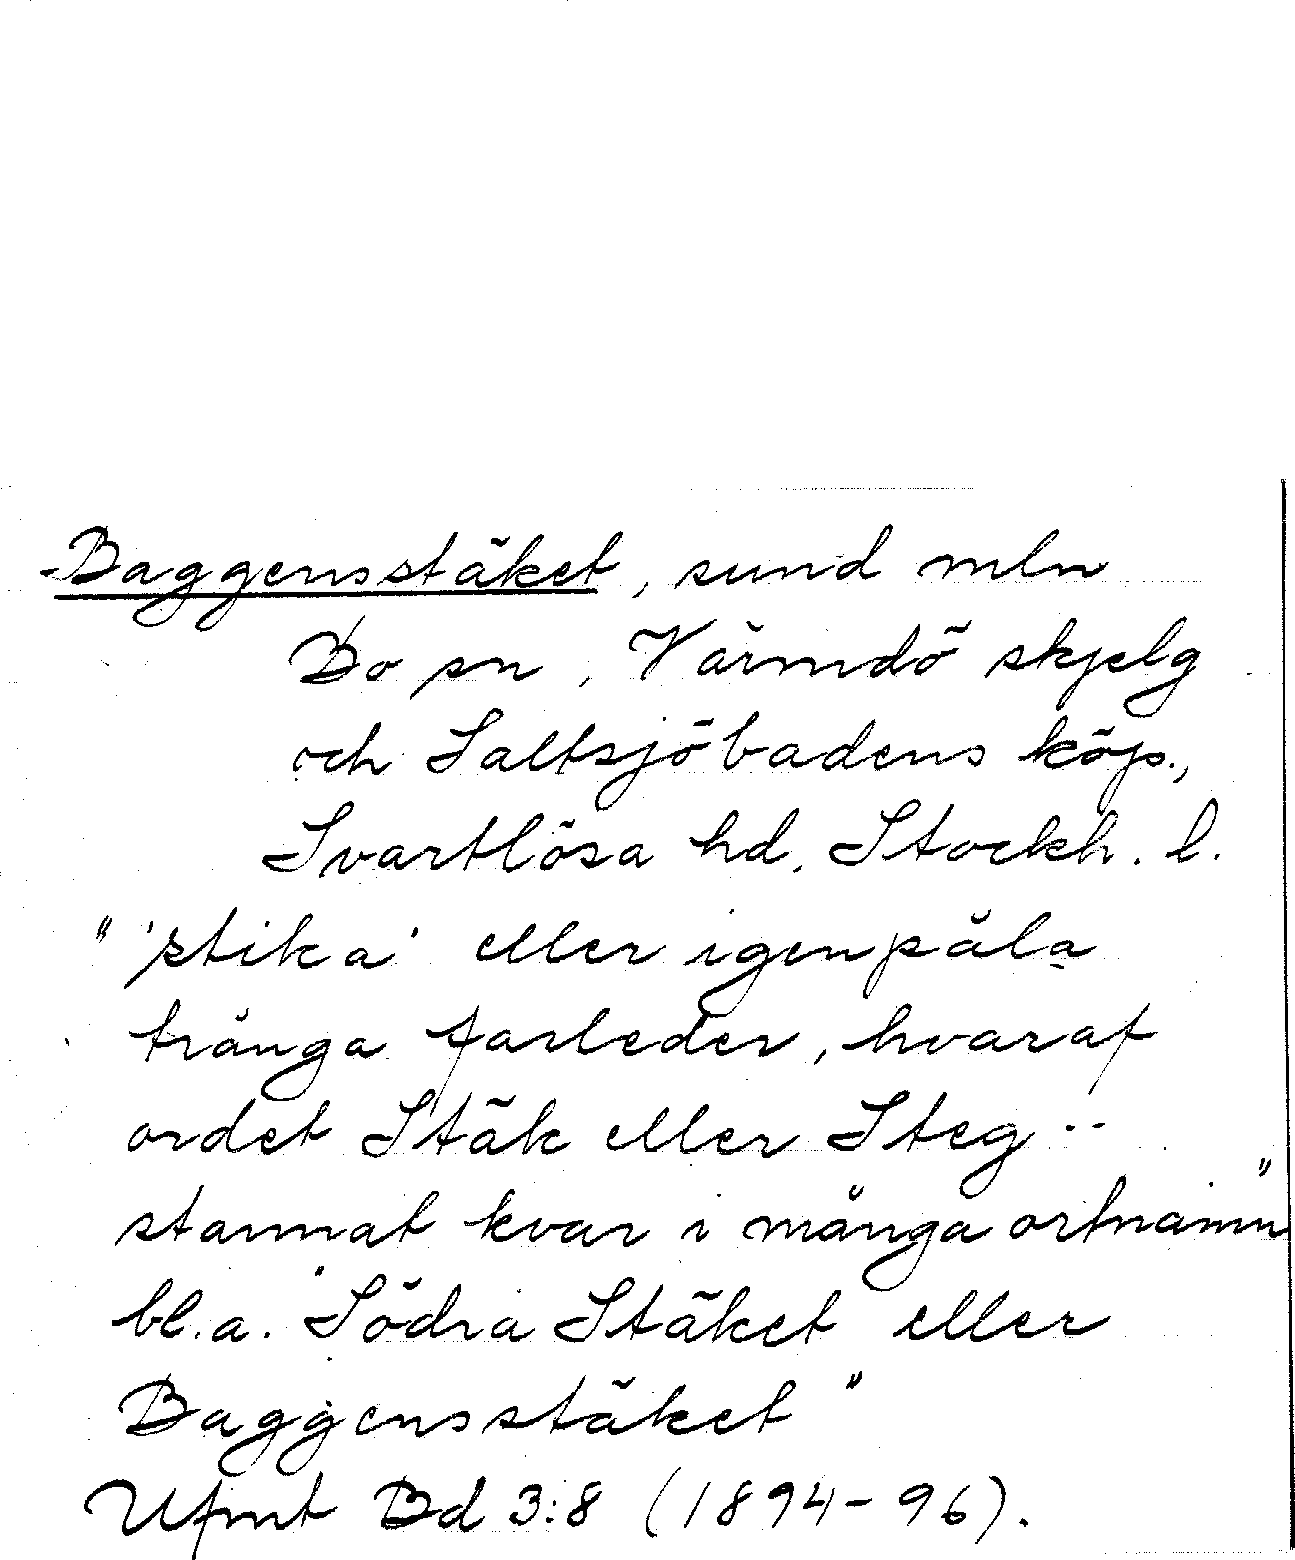 Baggensstäket, sund mln
Bo sn, Värmdö skjelg
och Saltsjöbadens köp.,
Svartlösa hd, Stockh. l.
" 'stika' eller igenpåla
trånga farleder, hvaraf
ordet Stäk eller Steg --
stannat kvar i många ortnamn"
bl.a. "Södra Stäket eller
Baggensstäket"
Ufmt Bd 3:8 (1894-96).